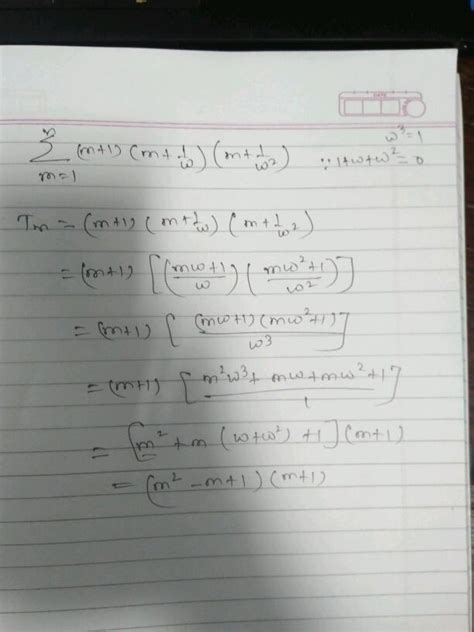 DATE
n
∑ (m+1) (m+1/ω) (m+1/ω²) ∵ 1+ω+ω²=0
m=1
ω³=1
Tm = (m+1) (m+1/ω) (m+1/ω²)
= (m+1) [((mω+1)/ω) ((mω²+1)/ω²)]
= (m+1) [(mω+1)(mω²+1)/ω³]
= (m+1) [(m²ω³+mω+mω²+1)/1]
= [m²+m(ω+ω²)+1](m+1)
= (m²-m+1)(m+1)